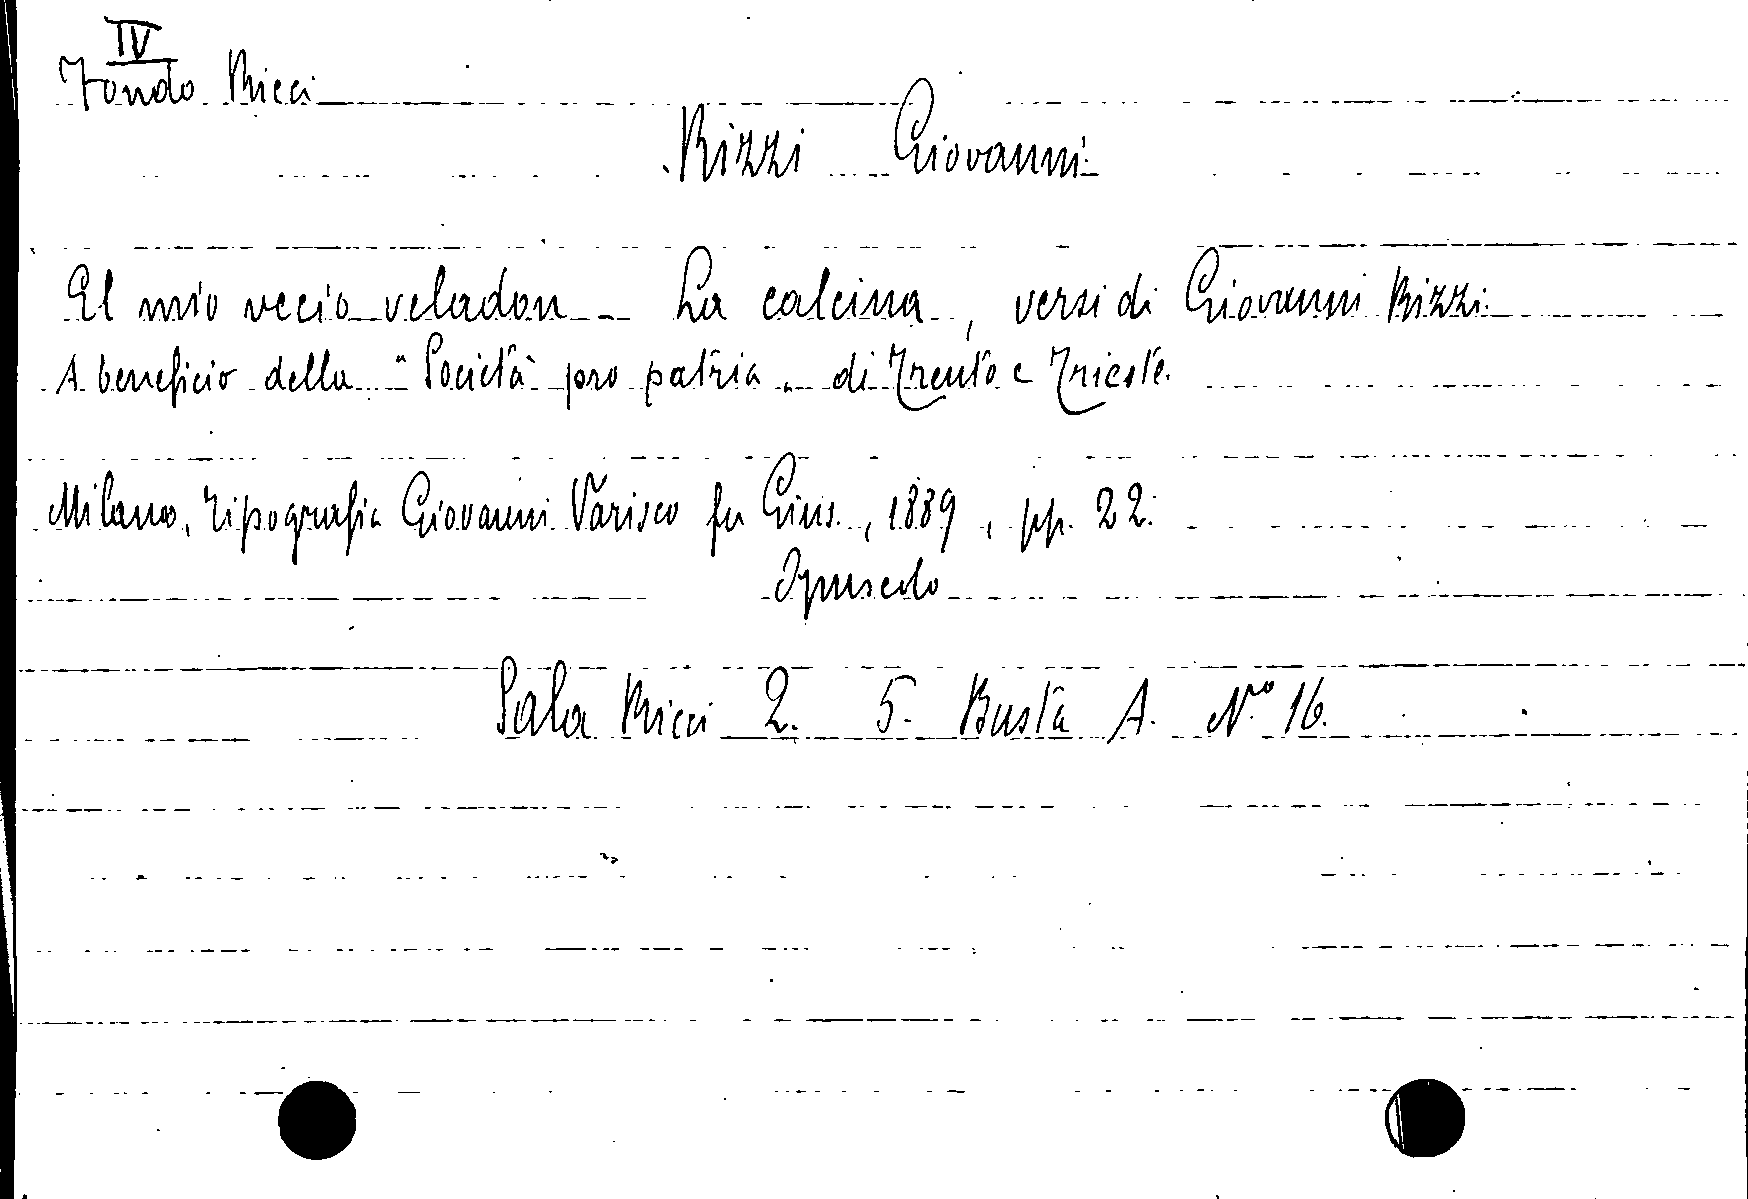 IV
Fondo Ricci
Rizzi Giovanni
El mio vecio veladon - La calcina, versi di Giovanni Rizzi.
A beneficio della "Società pro patria" di Trento e Trieste.
Milano, Tipografia Giovanni Varisco fu Gius., 1889, pp. 22.
Opuscolo
Sala Ricci 2. 5. Busta A. N.ro 16.